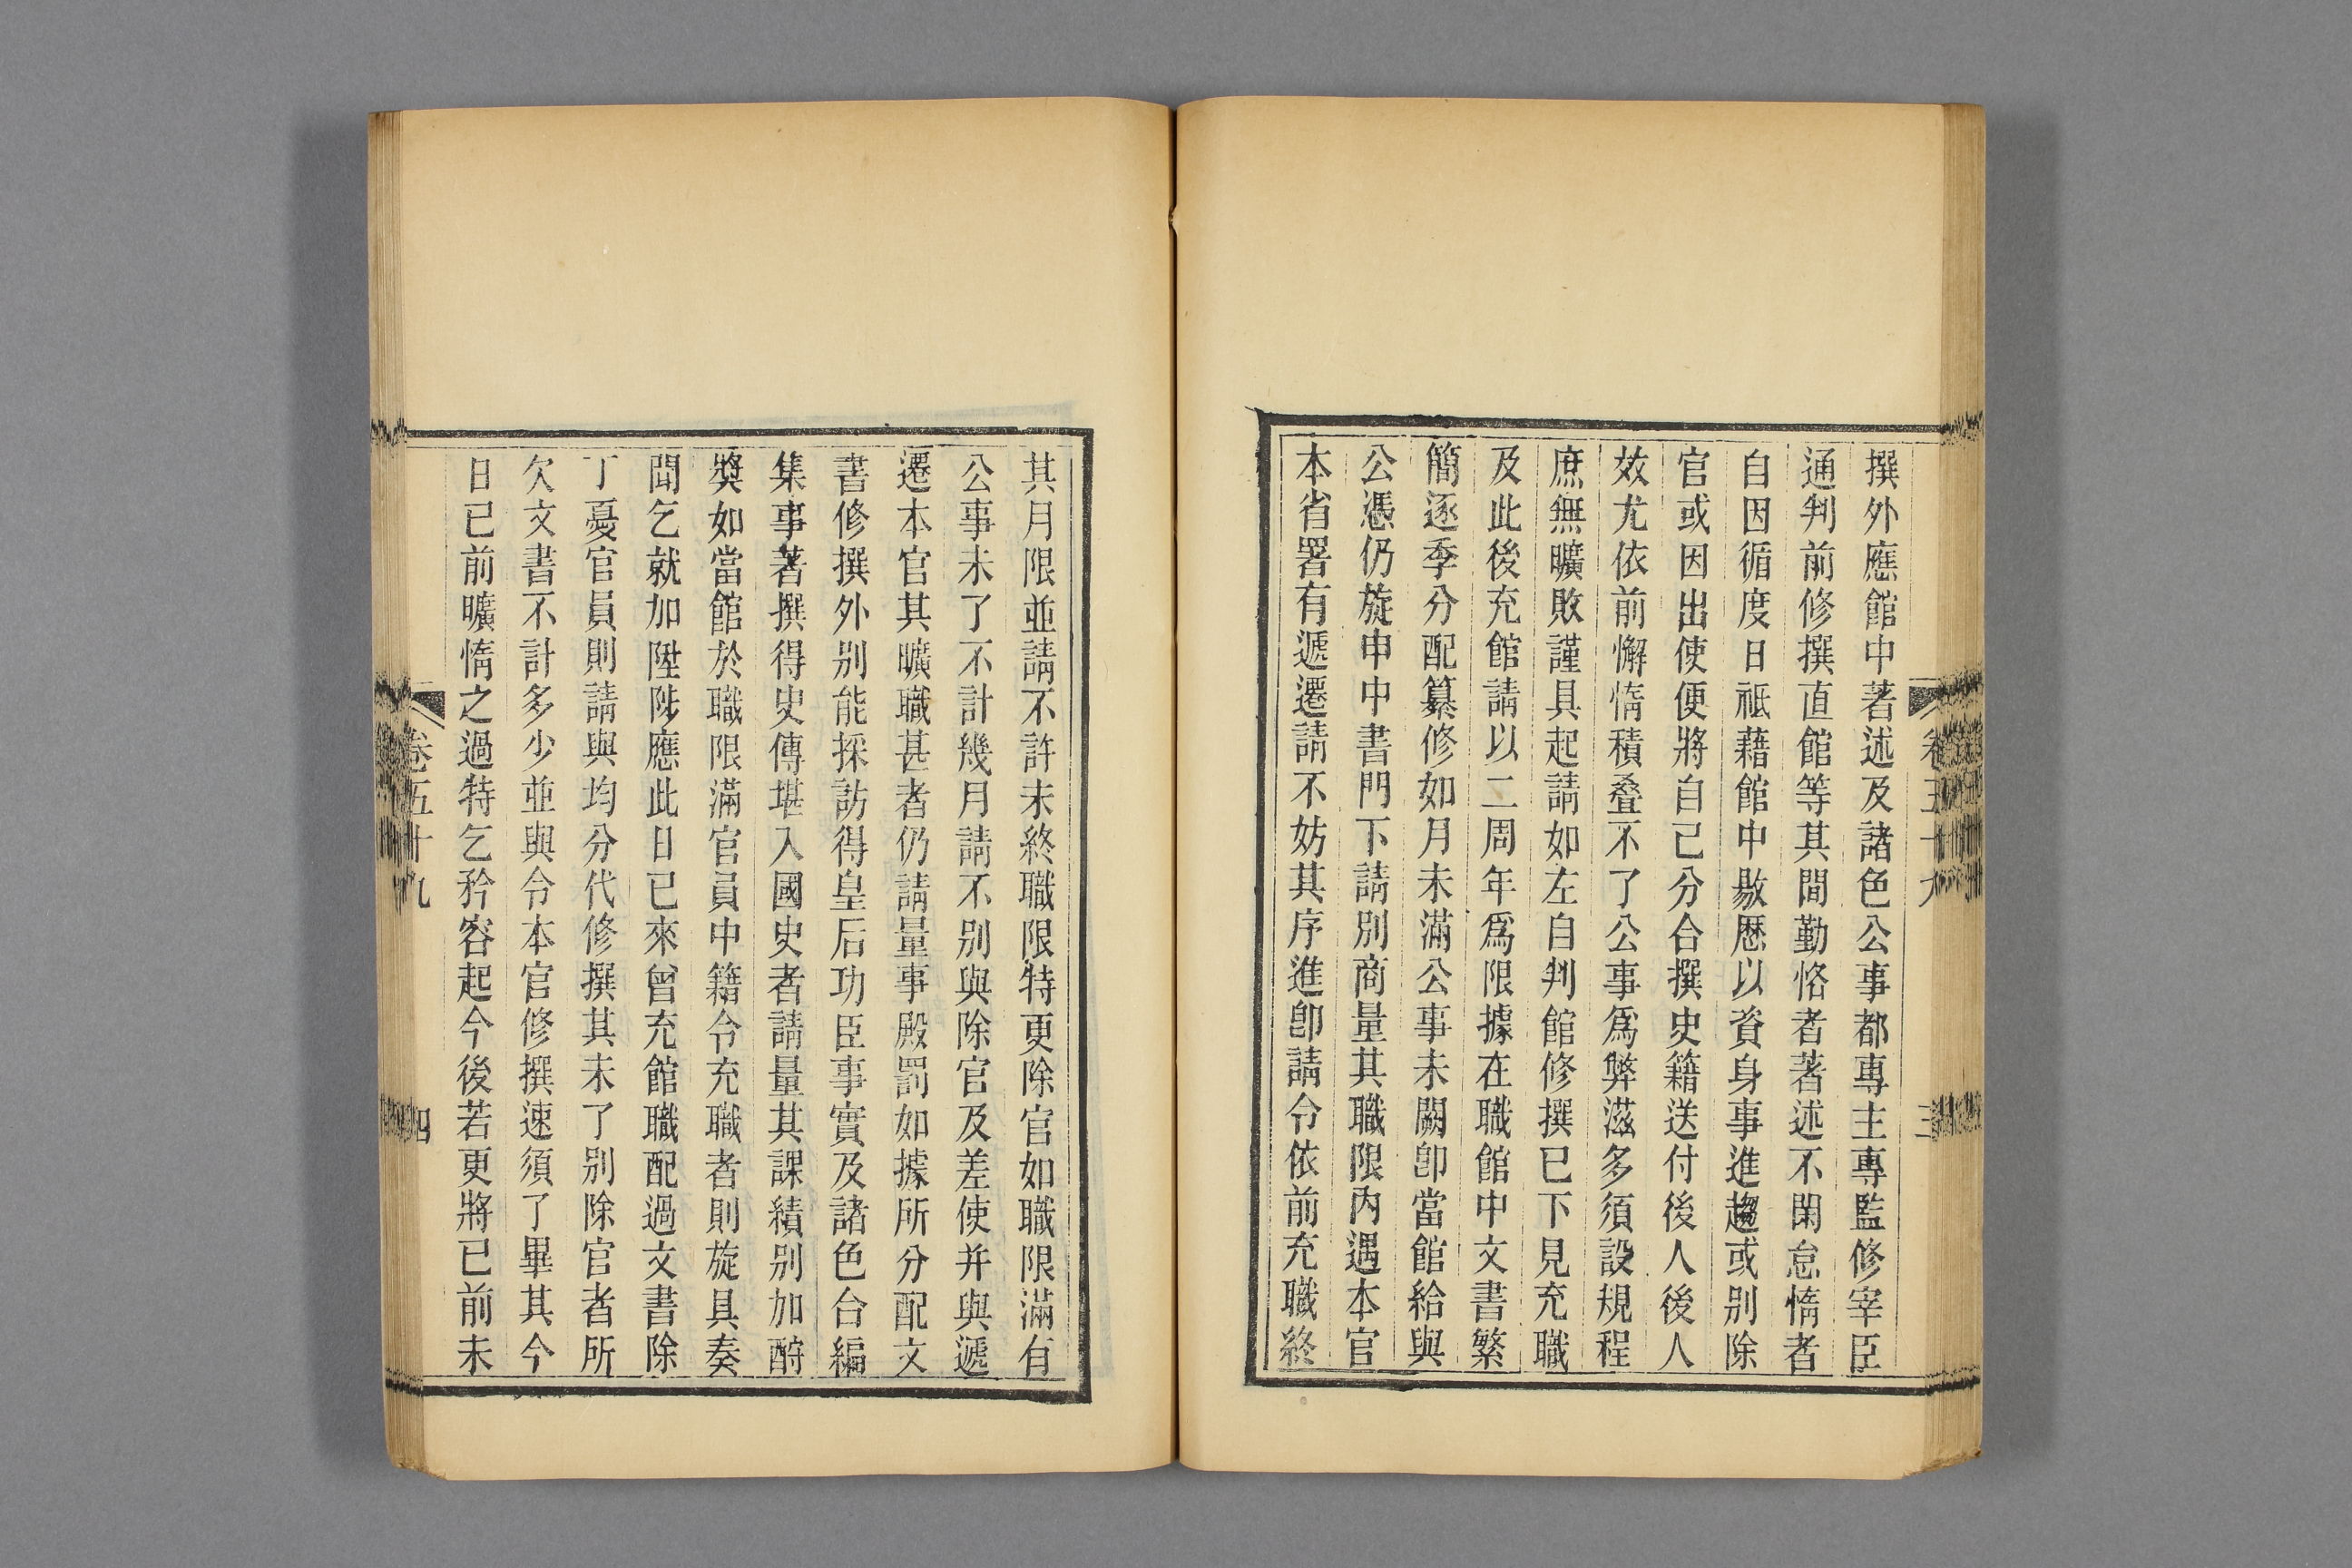 撰外應館中著述及諸色公事都專主專監修宰臣
通判前修撰直館等其間勤恪者著述不閑怠惰者
自因循度日祗藉館中敭歷以資身事進趨或别除
官或因出使便將自己分合撰史籍送付後人後人
效尤依前懈惰積叠不了公事爲弊滋多須設規程
庶無曠敗謹具起請如左自判館修撰已下見充職
及此後充館請以二周年爲限據在職館中文書繁
簡逐季分配纂修如月未滿公事未闕卽當館給與
公憑仍旋申中書門下請別商量其職限內遇本官
本省署有遞遷請不妨其序進卽請令依前充職終
卷五十九
三
其月限並請不許未終職限特更除官如職限滿有
公事未了不計幾月請不别與除官及差使并與遞
遷本官其曠職甚者仍請量事殿罰如據所分配文
書修撰外别能採訪得皇后功臣事實及諸色合編
集事著撰得史傳堪入國史者請量其課績别加酧
獎如當館於職限滿官員中籍令充職者則旋具奏
聞乞就加陞陟應此日已來曾充館職配過文書除
丁憂官員則請與均分代修撰其未了别除官者所
欠文書不計多少並與令本官修撰速須了畢其今
日已前曠惰之過特乞矜容起今後若更將已前未
卷五十九
四